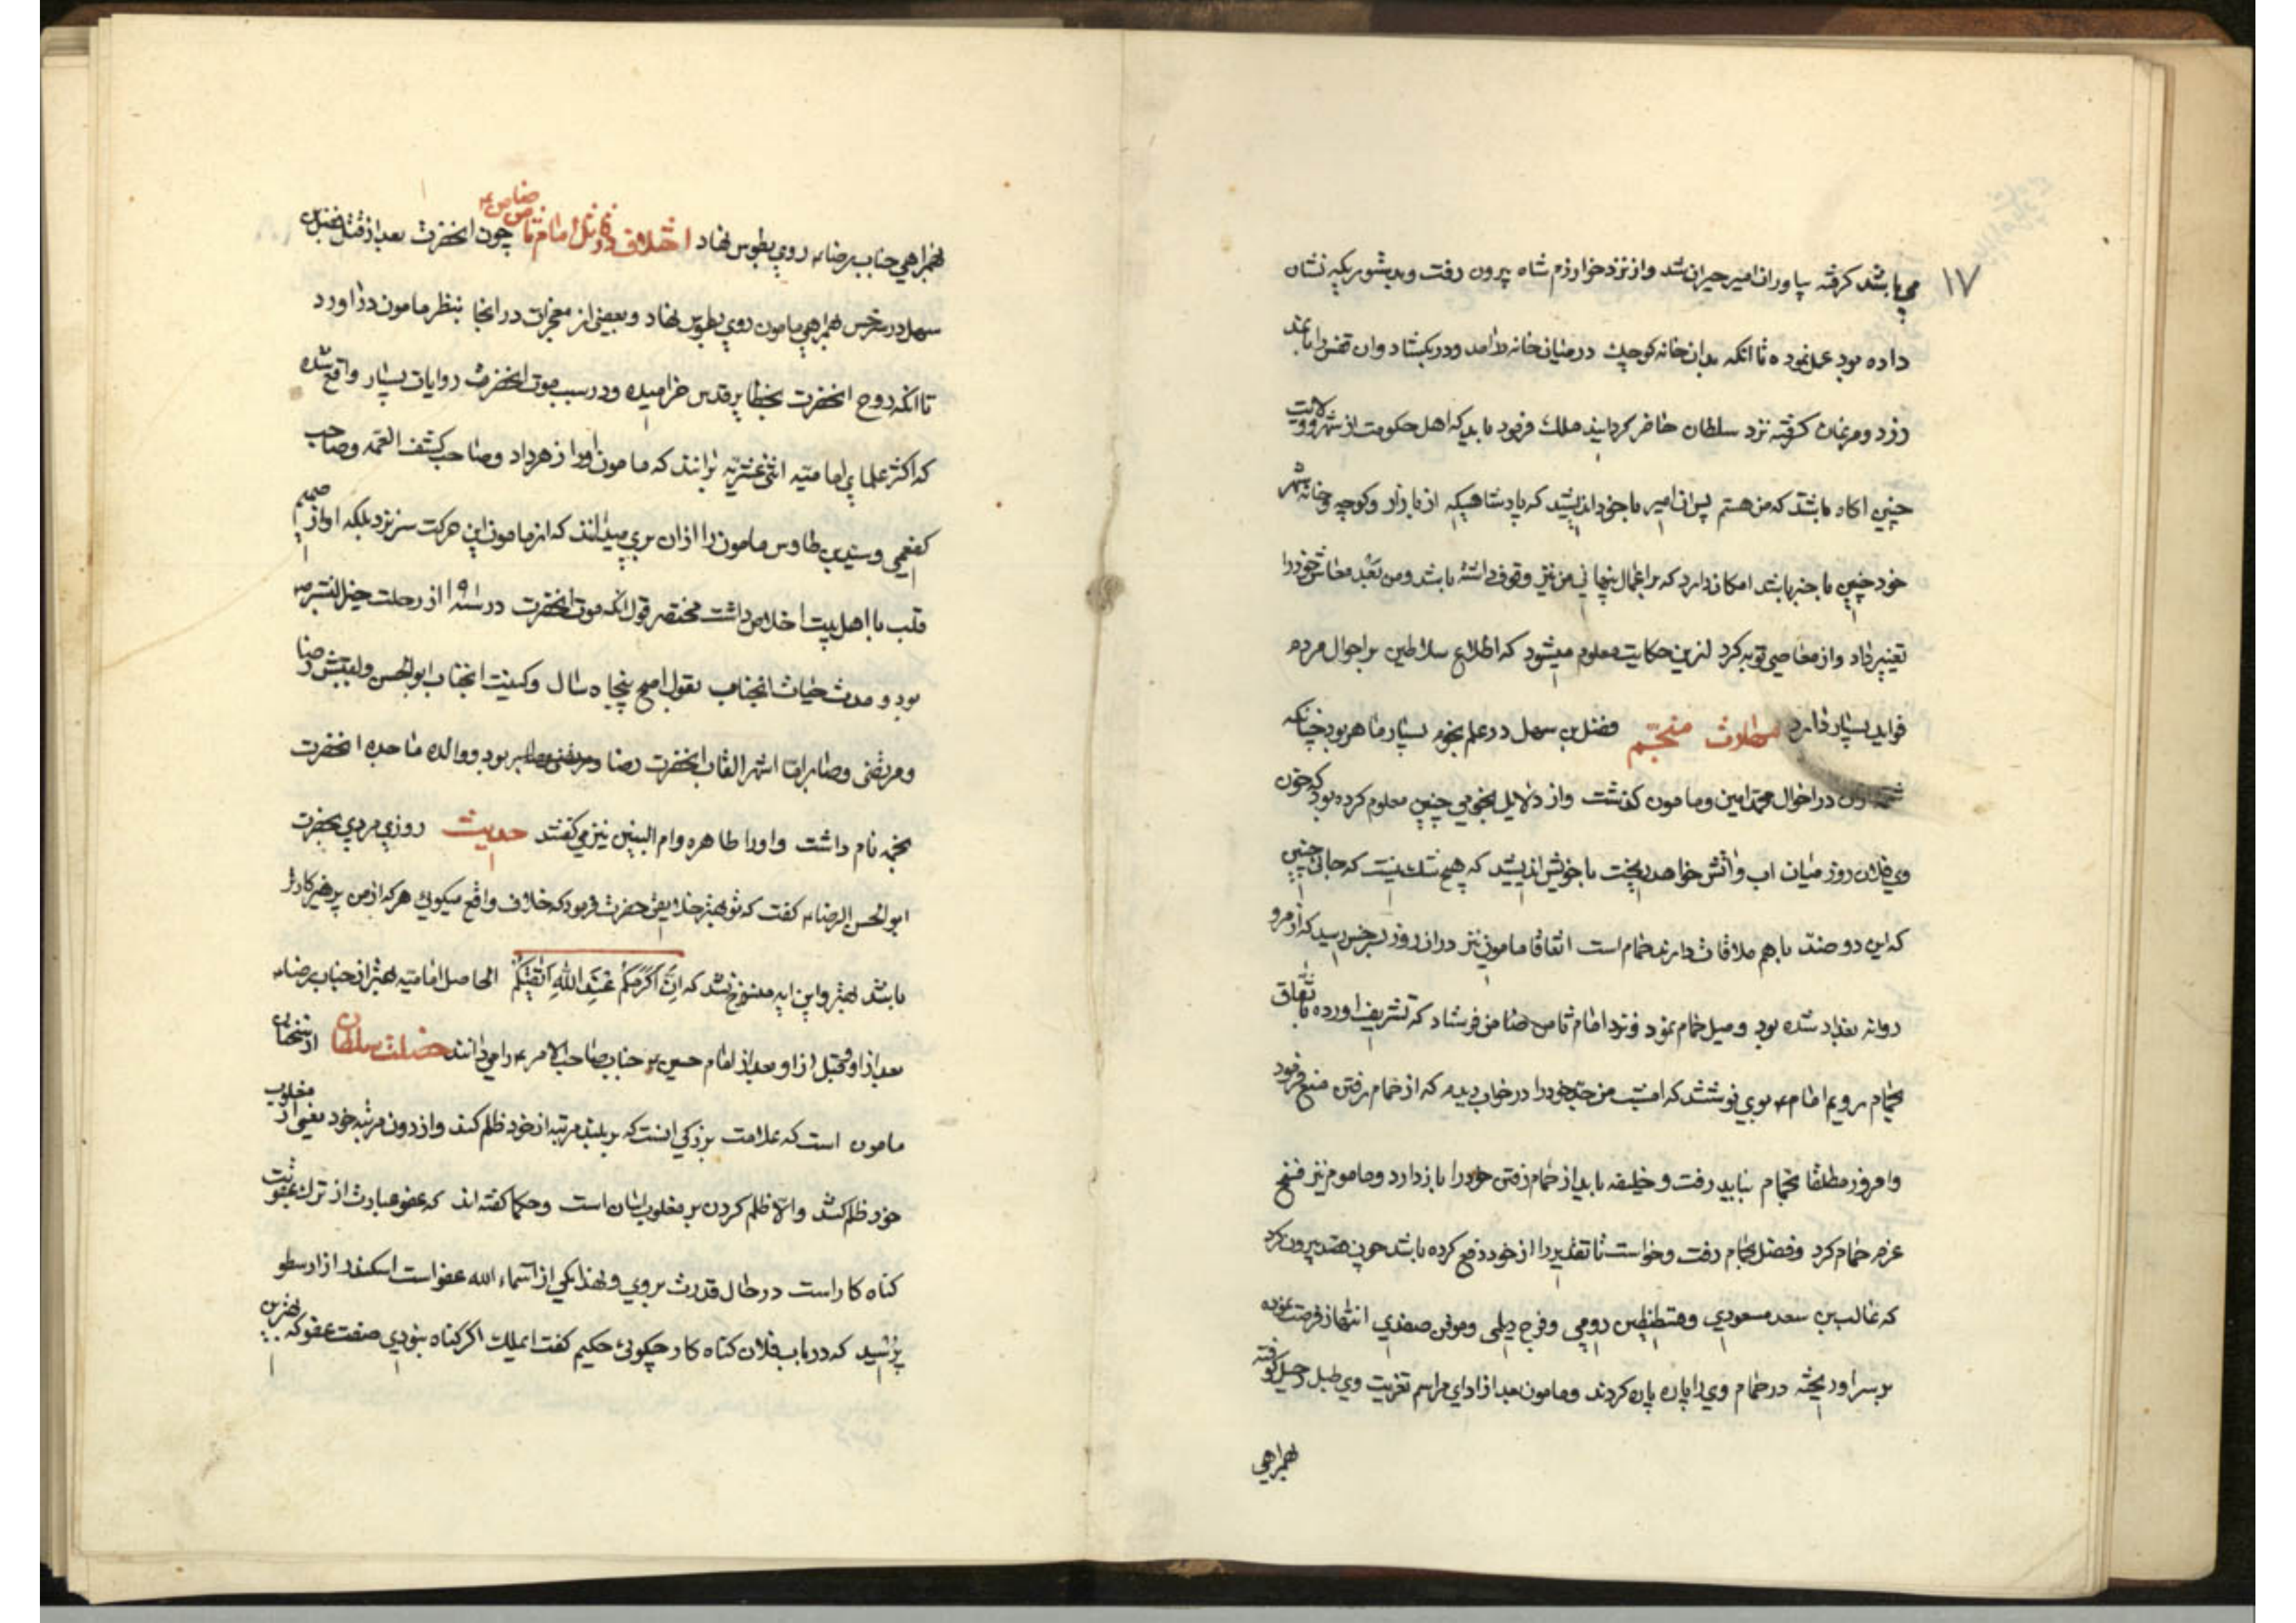 ۱۷
می باشد کرفته بیاور ان امیر حیران شد و از نزد خوارزم شاه بیرون رفت و بدستوریکه نشان
داده بود عمل نموده تا آنکه بدان خانه کوچک در میان خانه درامد و در بکشاد و ان قفس را با چند
دزد و مرغان کرفته نزد سلطان حاضر کردانید ملک فرمود باید که اهل حکومت از شهر و ولایت
چنین اکاه باشند که من هستم پس ان امیر با خود اندیشید که پادشاهیکه از بازار و کوچه و خانه شهر
خود چنین با خبر باشد امکان دارد که بر اعمال پنهانی من نیز وقوف داشته باشد و من بعد معاش خود را
تغییر داد و از معاصی توبه کرد ازین حکایت معلوم میشود که اطلاع سلاطین بر احوال مردم
فواید بسیار دارد منجم فضل بن سهل در علم نجوم بسیار ماهر بود چنانکه
در احوال محمد امین و مامون کذشت و از دلایل نجومی چنین معلوم کرده بود که خون
وی فلان روز میان اب و اتش خواهد ریخت با خویش اندیشید که هیچ شک نیست که جائی چنین
که این دو ضد با هم ملاقات دارند حمام است اتفاقا مامون نیز دران روز بسرخس رسید که از مرو
روانه بغداد شده بود و میل حمام نمود و نزد امام ثامن ضامن فرستاد که تشریف اورده باتفاق
بحمام رویم امام ع بوی نوشتند که امشب من جد خود را در خواب دیدم که از حمام رفتن منع فرمود
و امروز مطلقا بحمام نباید رفت و خلیفه باید از حمام رفتن خود را باز دارد و مامون نیز فسخ
عزم حمام کرد و فضل بحمام رفت و خواست تا تقدیر را از خود دفع کرده باشد خون فصد بیرون کرد
که غالب بن سعد مسعودی و قسطنطین رومی و فرج دیلمی و موفق صفدی انتهاز فرصت نموده
بر سر او ریخته در حمام وی را پاره پاره کردند و مامون بعد از ادای مراسم تعزیت وی طبل رحیل کوفته
بهمراهی
بهمراهی جناب رضا ع روی بطوس نهاد اختلاف در قاتل امام ثامن ضامن ع چون انحضرت بعد از قتل فضل بن
سهل در سرخس بهمراهی مامون روی بطوس نهاد و بعضی از معجزات در انجا بنظر مامون دراورد
تا انکه روح انحضرت بحظایر قدس خرامیده و در سبب موت انحضرت روایات بسیار واقع شده
که اکثر علمای امامیه اثنی عشریه برانند که مامون او را زهر داد و صاحب کشف الغمه و صاحب
کفعمی و سید بن طاوس مامون را ازان بری میدانند که از مامون این حرکت سر نزد بلکه او از صمیم
قلب با اهل بیت اخلاص داشت مختصر قول انکه موت انحضرت در سنه از رحلت خیر البشر ص
بود و مدت حیات انجناب بقول اصح پنجاه سال و کنیت انجناب ابو الحسن و لقبش رضا
و مرتضی و صابر اما اشهر القاب انحضرت رضا و مرتضی و صابر بود و والده ماجده انحضرت
نجمه نام داشت و او را طاهره و ام البنین نیز می کفتند حدیث روزی مردی بحضرت
ابو الحسن الرضا ع کفت که تو بهتر خلایقی حضرت فرمود که خلاف واقع میکوئی هر که از من پرهیزکارتر
باشد بهتر و این ایه منسوخ نشد که اِنَّ اَکْرَمَکُمْ عِنْدَ اللّٰهِ اَتْقیٰکُمْ الحاصل امامیه بهتر از جناب رضا ع
بعد از او و قبل از او بعد از امام حسین ع جناب صاحب الامر ع را می دانند خصلت سلطان از سخنان
مامون است که علامت بزرکی انست که بر بلند مرتبه از خود ظلم کند و از دون مرتبه خود یعنی از مغلوب
خود ظلم کشد والا ظلم کردن بر مغلوب اسان است و حکما کفته اند که عفو عبارت از ترک عقوبت
کناه کار است در حال قدرت بر وی و لهذا یکی از اسماء الله عفو است اسکندر از ارسطو
پرسید که در باب فلان کناه کار چکوئی حکیم کفت ایملک اکر کناه نبودی صفت عفو که بهترین